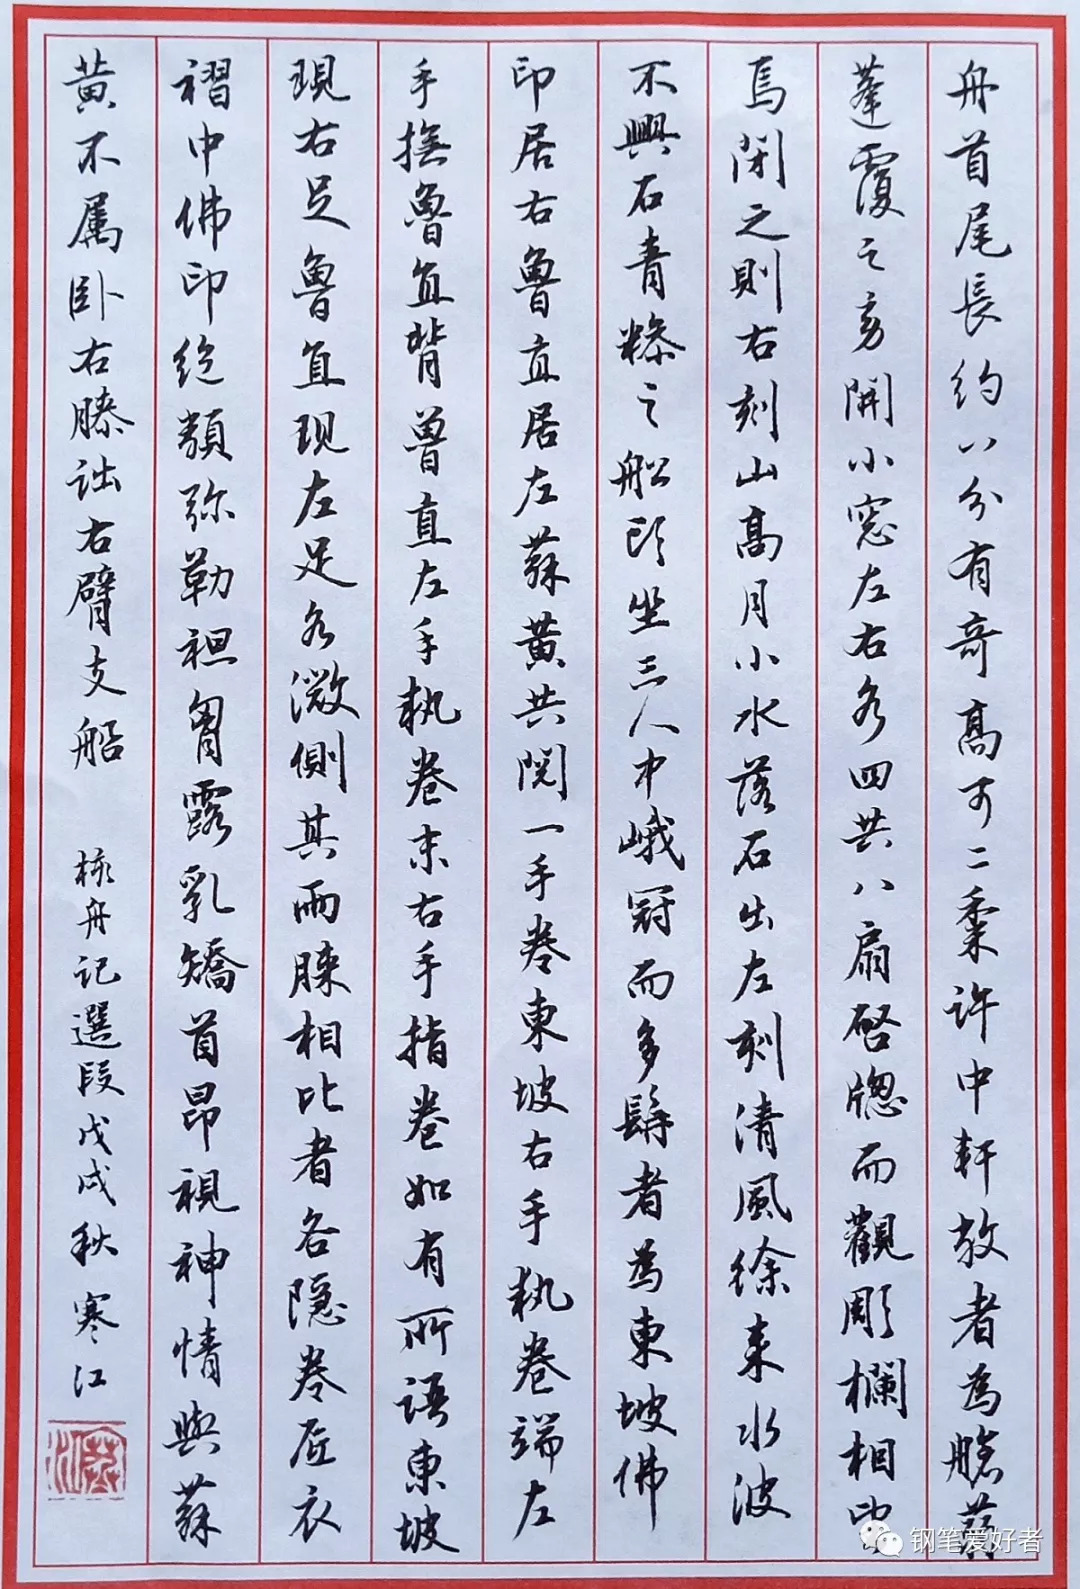 舟首尾長約八分有奇高可二黍許中軒敞者為艙蒻
蓬覆之旁開小窓左右各四共八扇啓牕而觀彫欄相望
焉閉之則右刻山高月小水落石出左刻清風徐来水波
不興石青糝之船頭坐三人中峨冠而多髯者為東坡佛
印居右魯直居左蘇黃共閱一手卷東坡右手執卷端左
手撫魯直背魯直左手執卷末右手指卷如有所語東坡
現右足魯直現左足各微側其兩膝相比者各隱卷底衣
褶中佛印絕類弥勒袒胷露乳矯首昂視神情與蘇
黃不属卧右膝詘右臂支船
核舟記選段戊戌秋寒江
钢笔爱好者